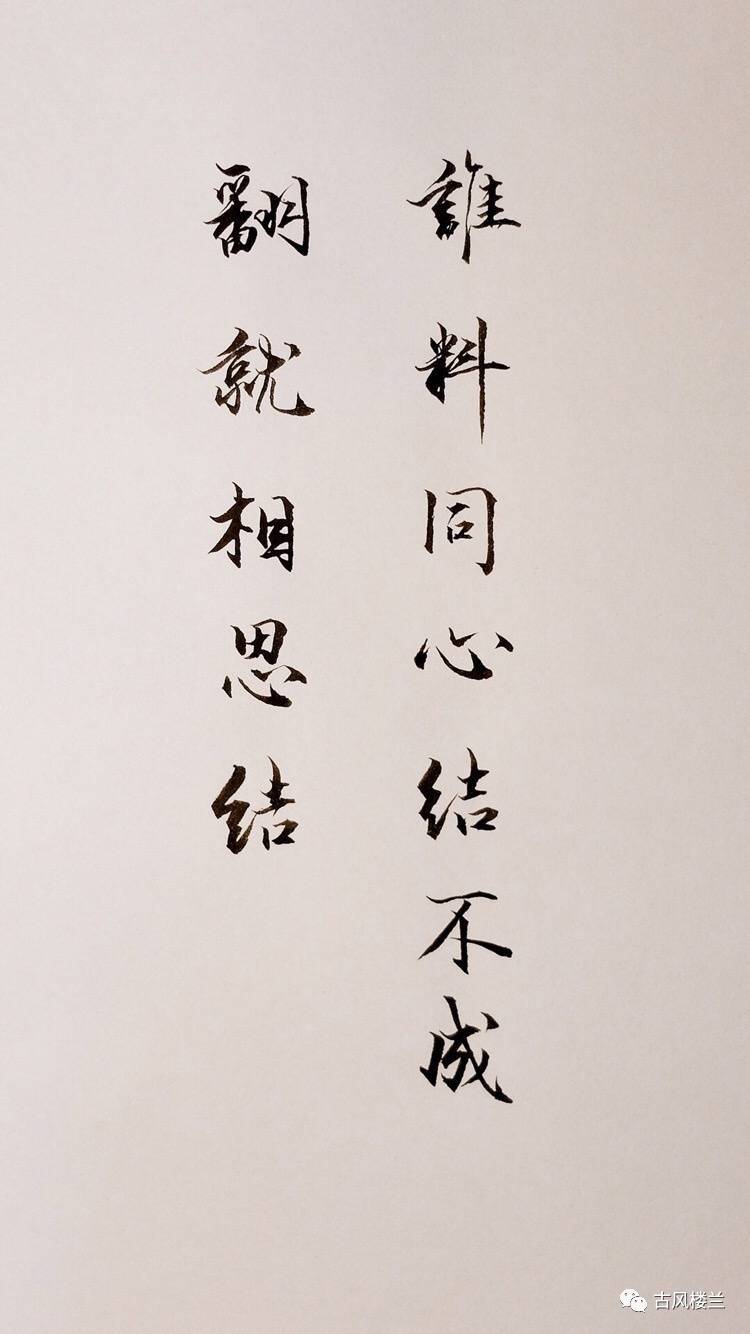 誰料同心结不成
翻就相思结
古风楼兰